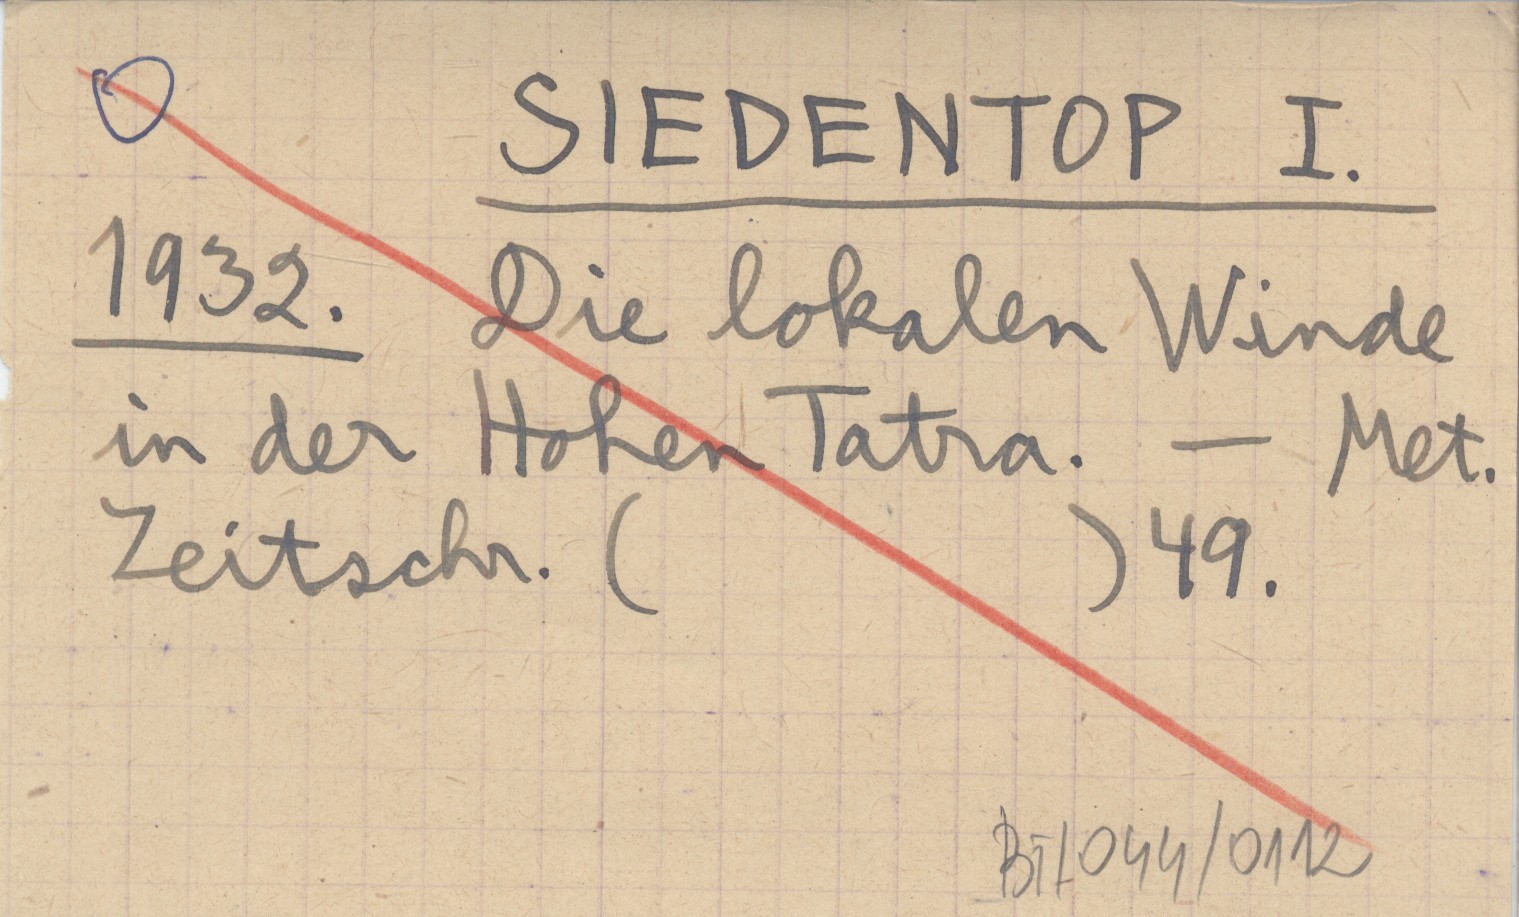 SIEDENTOP I.
1932. Die lokalen Winde
in der Hohen Tatra. — Met.
Zeitschr. ( ) 49.
BTL044/0112